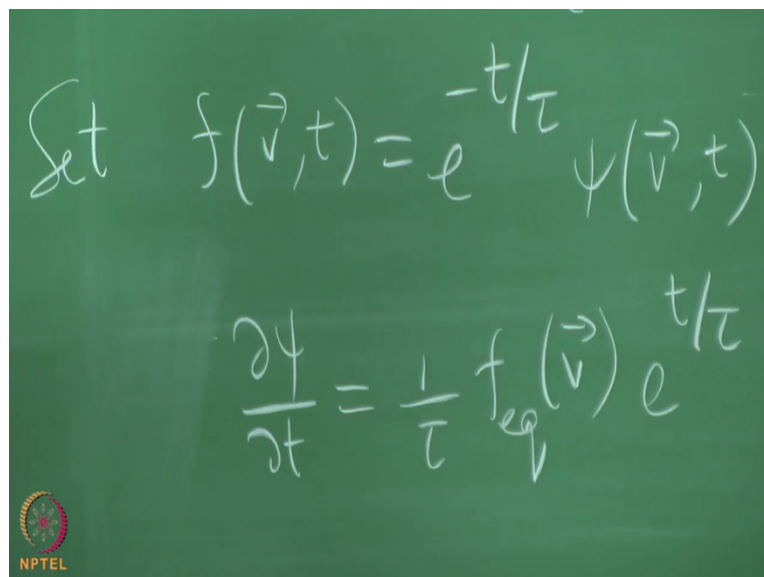 Set f(v⃗,t) = e^{-t/τ} ψ(v⃗,t)
∂ψ/∂t = 1/τ f_{eq}(v⃗) e^{t/τ}
NPTEL